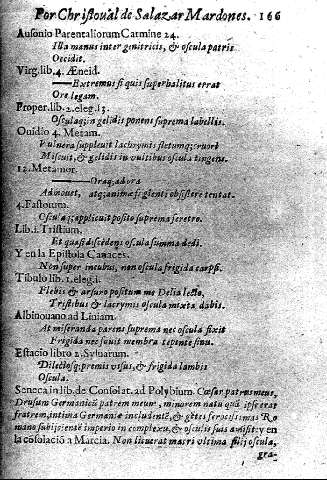 Por Christoual de Salazar Mardones. 166
Ausonio Parentaliorum Carmine 24.
Illa manus inter genitricis, & oscula patris
Occidit.
Virg. lib. 4. Æneid.
—Extremus si quis super halitus errat
Ore legam.
Proper. lib. 2. eleg. 13.
Osculaq; in gelidis ponens suprema labellis.
Ouidio 4. Metam.
Vulnera suppleuit lachrymis fletumq; cruori
Miscuit, & gelidis in vultibus oscula fingens.
12. Metamor.
—Oraq, ad ora
Admouet, atq; animæ fugienti obsistere tentat.
4. Fastorum.
Osculaq; applicuit posito suprema feretro.
Lib. 1. Tristium.
Et quasi discedens oscula summa dedi.
Y en la Epistola Canaces.
Non super incubui, non oscula frigida carpsi.
Tibulo lib. 1. eleg. 1.
Flebis & arsuro positum me Delia lecto,
Tristibus & lacrymis oscula mixta dabis.
Albinouano ad Liuiam.
At miseranda parens suprema nec oscula fixit
Frigida nec fouit membra tepente sinu.
Estacio libro 2. Syluarum.
Dilectosq; premis visus, & frigida lambis
Oscula.
Seneca in lib. de Consolat. ad Polybium. Cæsar patruus meus,
Drusum Germanicũ patrem meum, minorem natu quã ipse erat
fratrem, intima Germaniæ includentẽ, & gẽtes ferocissimas Ro
mano subijcientẽ imperio in complexu, & osculis suis amisit: y en
la cõsolaciõ a Marcia. Non licuerat matri vltima filij oscula,
gra-